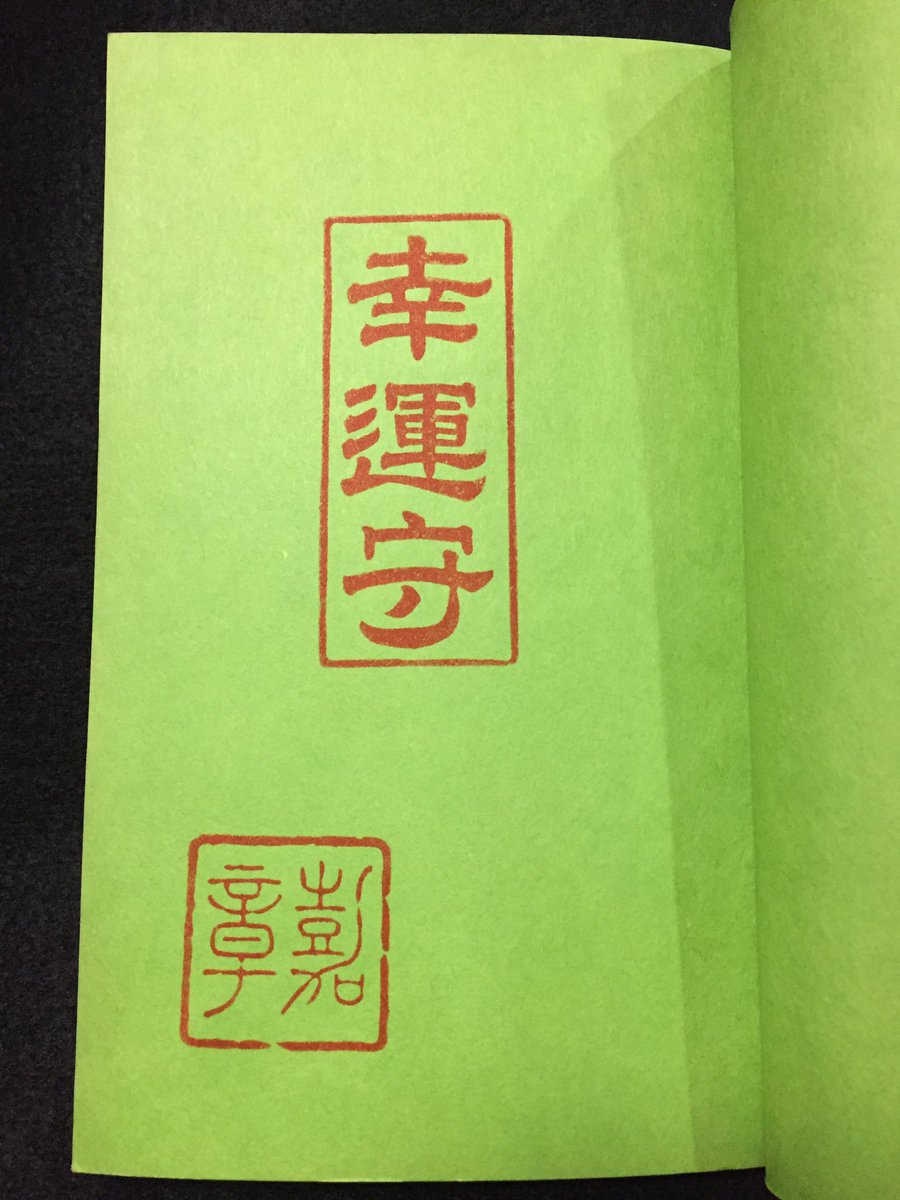 幸運守
嘉章